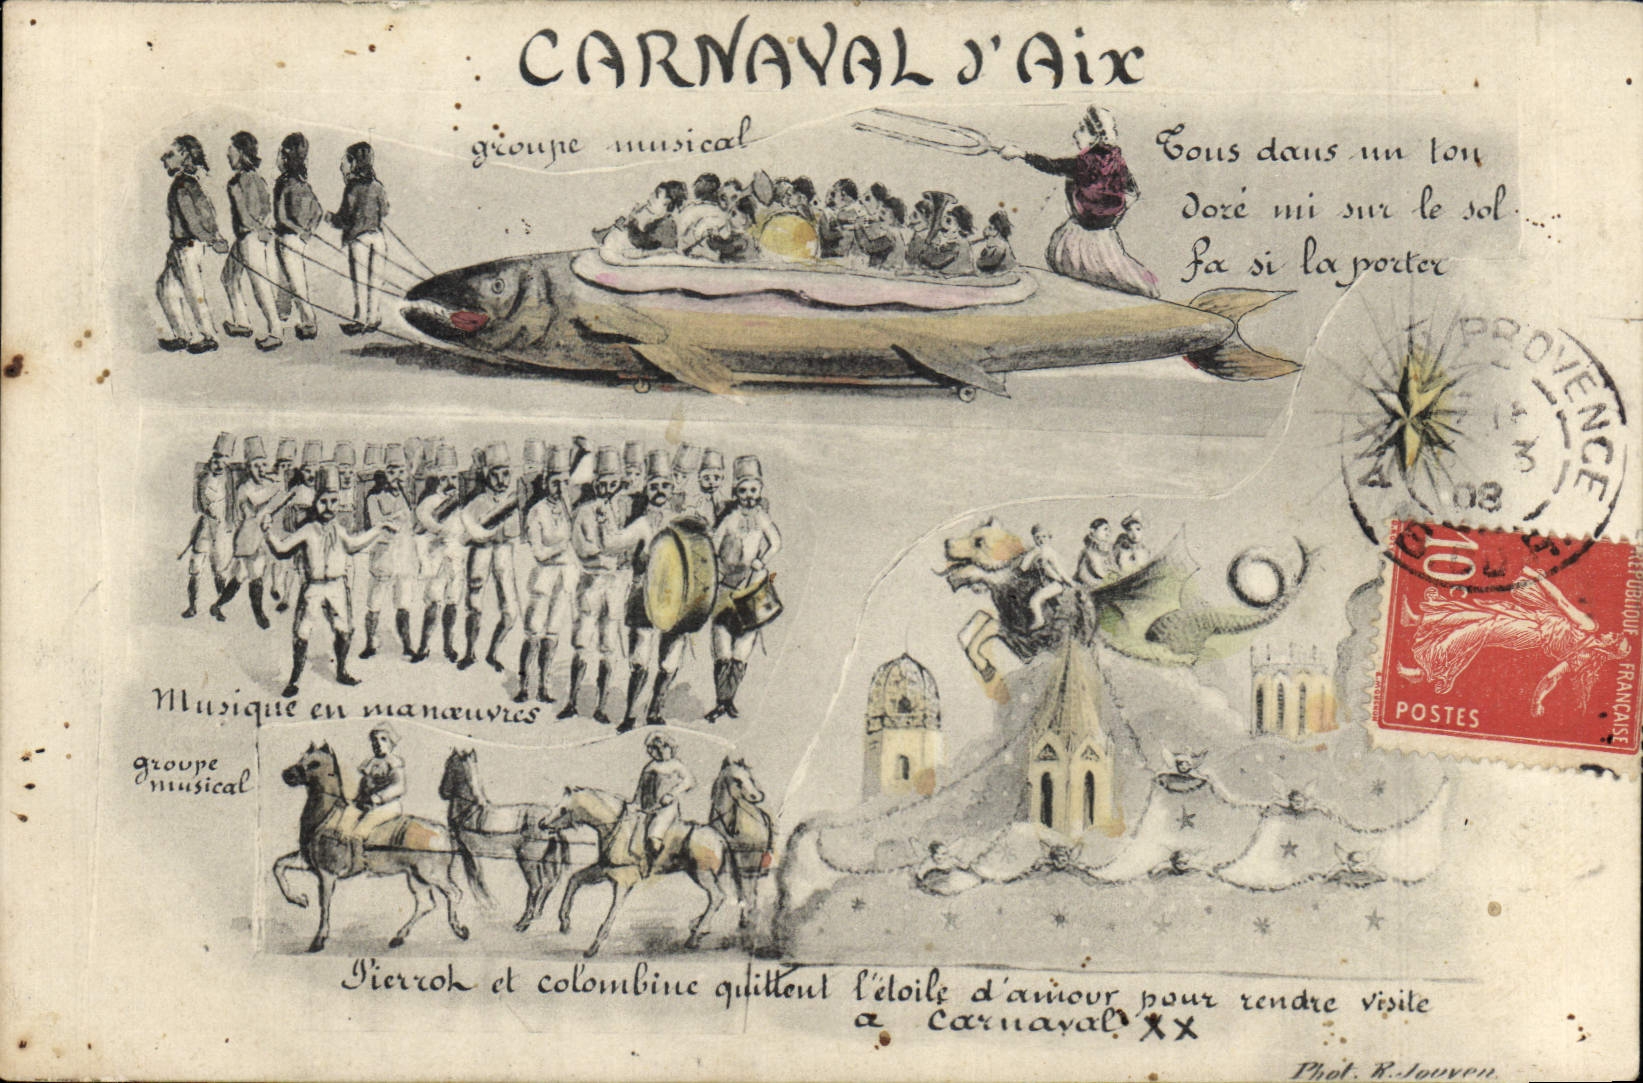 CARNAVAL d'Aix
groupe musical
Tous dans un ton
doré mi sur le sol....
fa si la porter
Musique en manœuvres
groupe
musical
Pierrot et colombine quittent l'étoile d'amour pour rendre visite
a Carnaval XX
Phot. R. Jouven.
PROVENCE
08
10c
RÉPUBLIQUE FRANÇAISE
POSTES